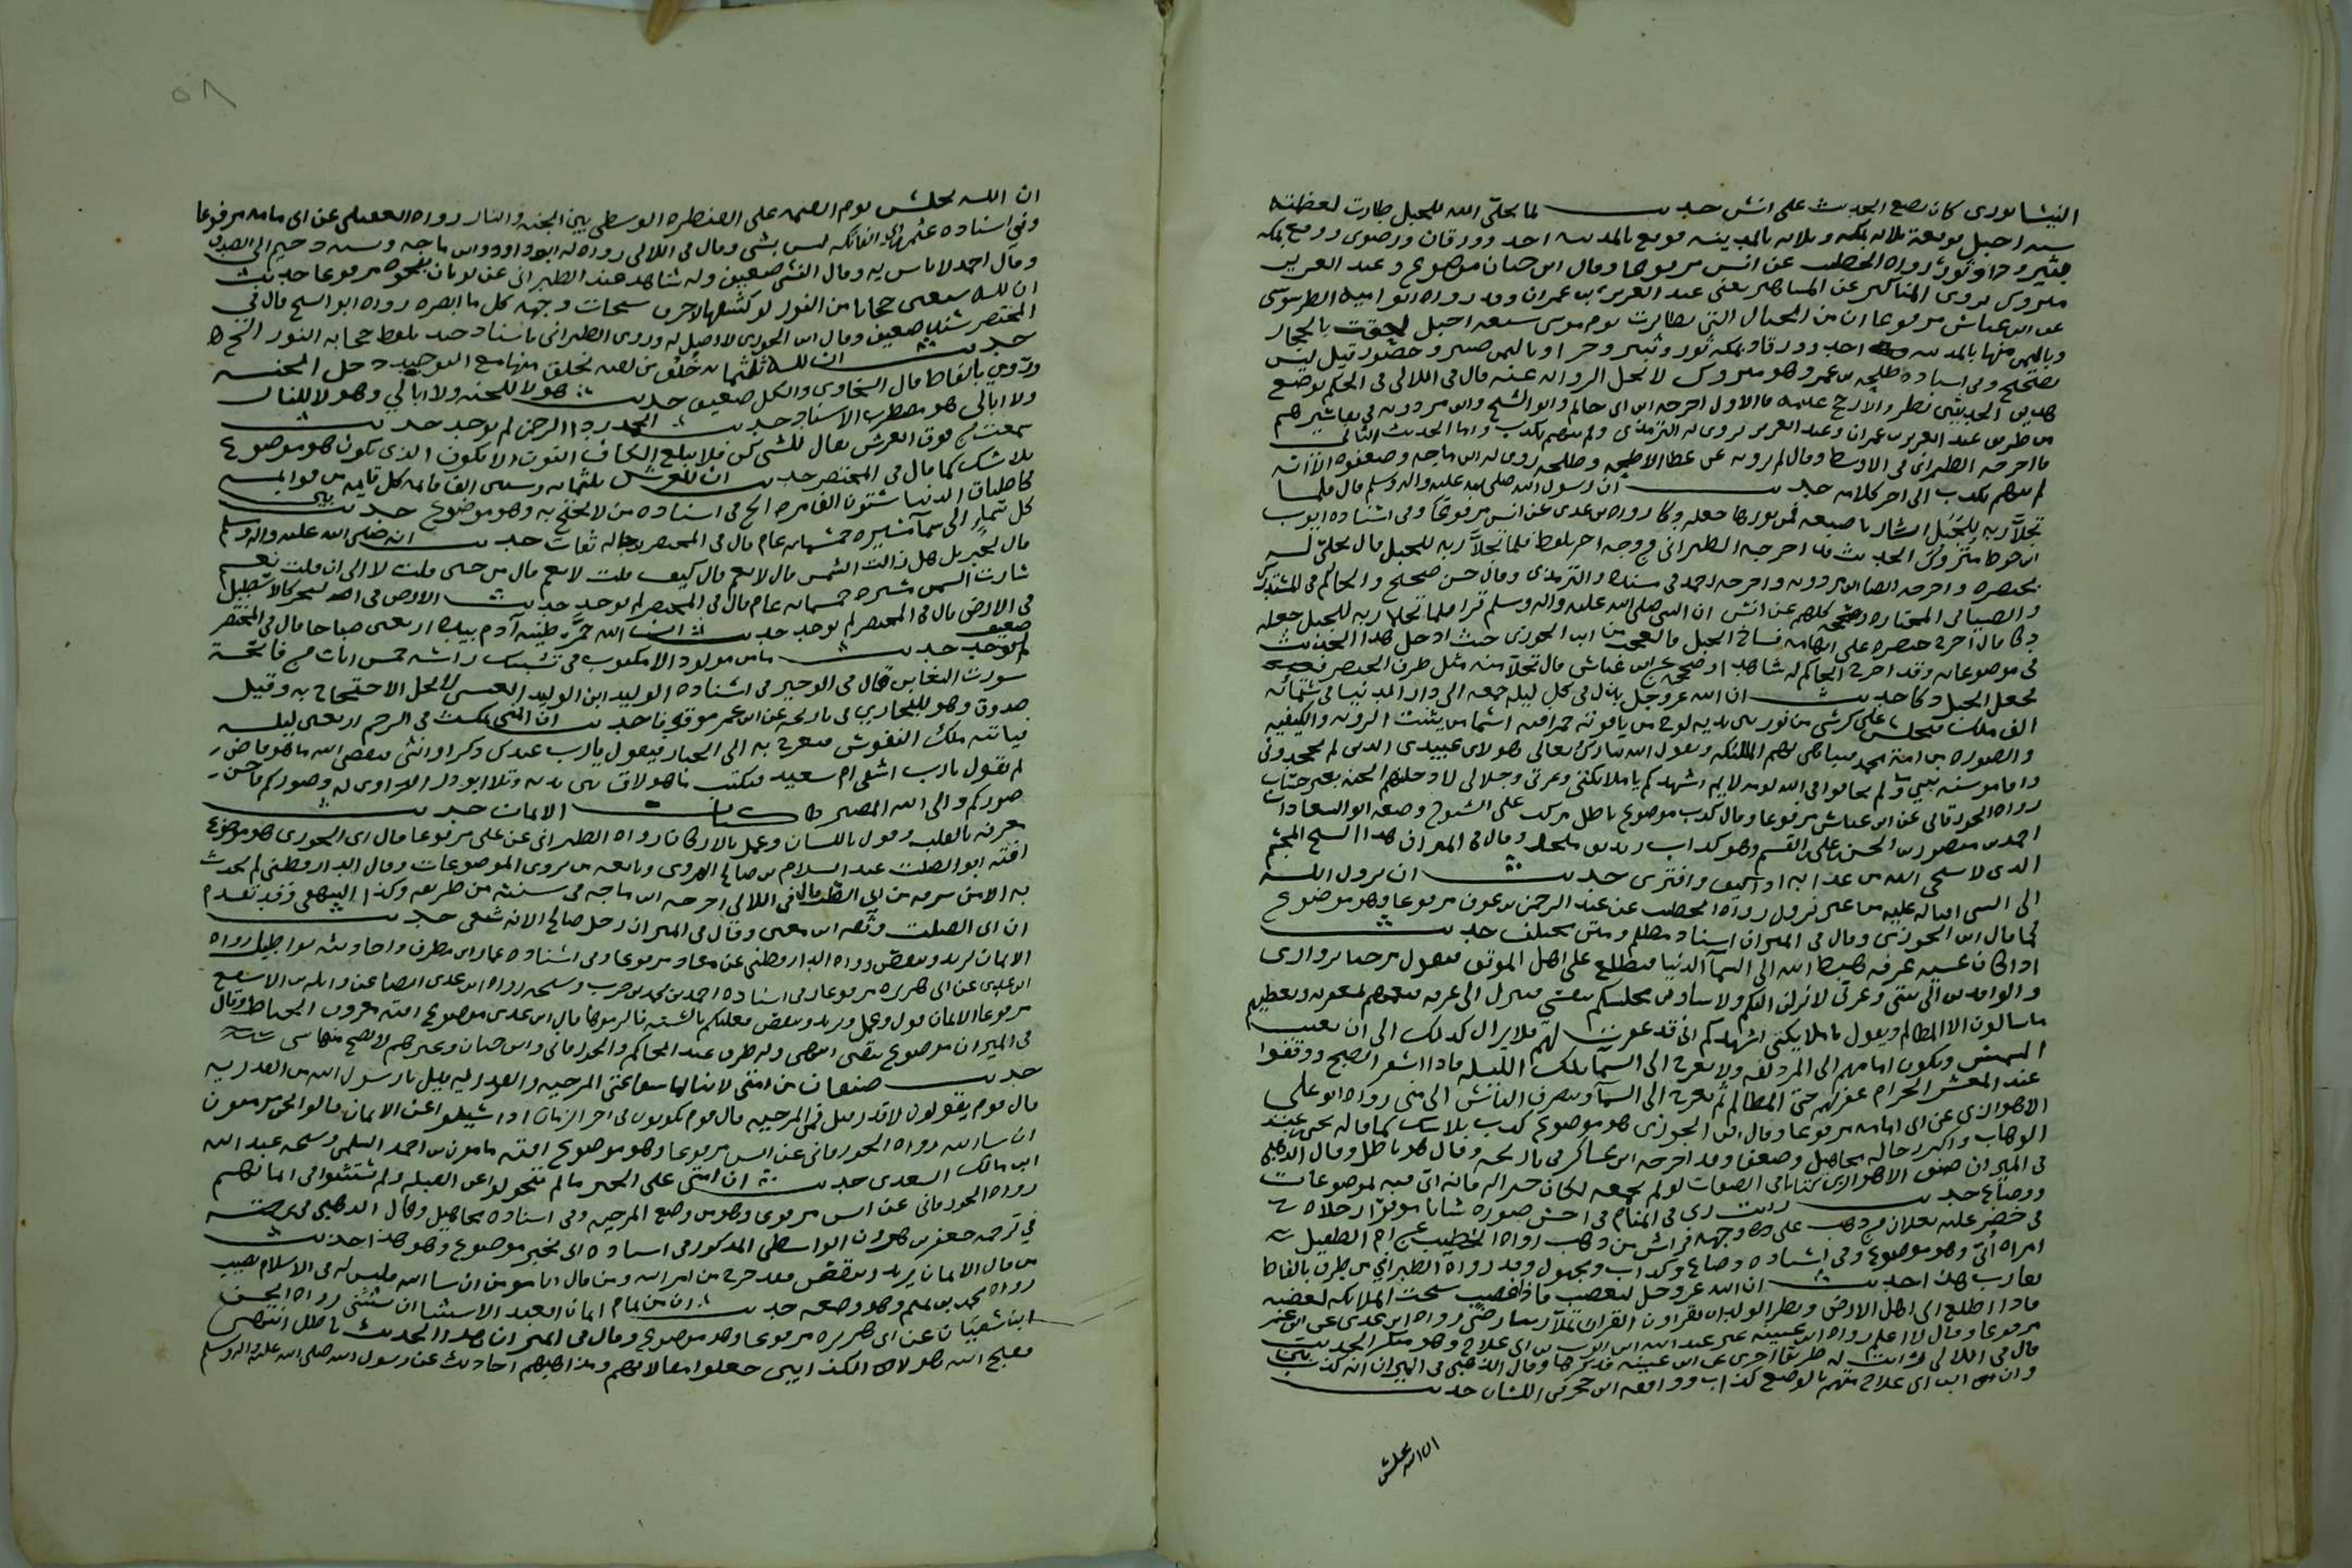 النيسابوري كان يضع الحديث على انس حديث لما تجلى الله للجبل طارت لعظمته
ستة اجبل فوقعت ثلاثة بمكة وثلاثة بالمدينة فوقع بالمدينة احد وورقان ورضوى ووقع بمكة
ثبير وحرا وثور رواه الخطيب عن انس مرفوعا وقال ابن حبان موضوع وعبد العزيز
متروك يروي المناكير عن المشاهير يعني عبد العزيز بن عمران وقد رواه ابو امية الطرسوسي
عن ابن عباس مرفوعا ان من الجبال التي تطايرت يوم موسى سبعة اجبل لحقت بالحجاز
وباليمن منها بالمدينة احد وورقان وبمكة ثور وثبير وحرا وباليمن صبر وحضور قيل ليس
بصحيح وفي اسناده طلحة بن عمرو وهو متروك لا تحل الرواية عنه قال في اللالي في الحكم بوضع
هذين الحديثين نظر والارجح عدمه فالاول اخرجه ابن ابي حاتم وابو الشيخ وابن مردويه في تفاسيرهم
من طريق عبد العزيز بن عمران وعبد العزيز يروي له الترمذي ولم يتهم بكذب واما الحديث الثاني
فاخرجه الطبراني في الاوسط وقال لم يروه عن عطا الا طلحة وطلحة روى له ابن ماجه وضعفوه الا انه
لم يتهم بكذب الى اخر كلامه حديث ان رسول الله صلى الله عليه واله وسلم قال فلما
تجلا ربه للجبل اشار باصبعه فمن نورها جعله دكا رواه بن عدي عن انس مرفوعا وفي اسناده ايوب
ابن خوط متروك الحديث قد اخرجه الطبراني في وجه اخر بلفظ فلما تجلا ربه للجبل قال تجلى له
بخنصره واخرجه ايضا ابن مردويه واخرجه احمد في مسنده والترمذي وقال حسن صحيح والحاكم في المستدرك
والضيا في المختارة كلهم عن انس ان النبي صلى الله عليه واله وسلم قرا فلما تجلا ربه للجبل جعله
دكا قال اخرج خنصره على ابهامه فساخ الجبل فالعجب من ابن الجوزي حيث ادخل هذا الحديث
في موضوعاته وقد اخرج الحاكم له شاهدا وصححه عن ابن عباس قال تجلا منه مثل طرف الخنصر
فجعل الجبل دكا حديث ان الله عز وجل ينزل في كل ليلة جمعة الى دار الدنيا في ستمائة
الف ملك فيجلس على كرسي من نور بين يديه لوح من ياقوتة حمرا فيه اسما من يثبت الروية والكيفية
والصورة من امة محمد فيباهي بهم الملائكة ويقول الله تبارك وتعالى هولا عبيدي الذين لم يجحدوني
واقاموا سنة نبيي ولم يخافوا في الله لومة لايم اشهدكم يا ملائكتي وعزتي وجلالي لادخلنهم الجنة بغير حساب
رواه الجوزقاني عن ابن عباس مرفوعا وقال كذب موضوع باطل مركب على الشيوخ وضعه ابو السعادات
احمد بن منصور بن الحسن بن علي بن القسم وهو كذاب زنديق ملحد وقال في الميزان هذا الشيخ المجسم
الذي لا يستحي الله من عذابه اذ كيف وافترى حديث ان نزول الله
الى الشي اقباله عليه من غير نزول رواه الخطيب عن عبد الرحمن بن عوف مرفوعا وهو موضوع
كما قال ابن الجوزي وقال في الميزان اسناد مظلم ومتن مختلف حديث
اذا كان عشية عرفة هبط الله الى السما الدنيا فيطلع على اهل الموقف فيقول مرحبا بزواري
والوافدين الى بيتي وعزتي لانزلن اليكم ولاساوي مجلسكم بنفسي فينزل الى عرفة فيعمهم بمغفرته ويعطيهم
ما سالون الا المظالم ويقول يا ملايكتي اشهدكم اني قد غفرت لهم فلا يزال كذلك الى ان تغيب
الشمس ويكون امامهم الى المزدلفة ولا يعرج الى السما تلك الليلة فاذا اسفر الصبح ووقفوا
عند المشعر الحرام غفر لهم حتى المظالم ثم يعرج الى السما وينصرف الناس الى منى رواه ابو علي
الاهوازي عن ابي امامة مرفوعا وقال ابن الجوزي هو موضوع كذب بلا شك كما قاله يحيى عبد
الوهاب واكثر رجاله مجاهيل وضعفا وقد اخرجه ابن عساكر في تاريخه وقال هو باطل وقال الذهبي
في الميزان صنف الاهوازي كتابا في الصفات لو لم يجمعه لكان خيرا له فانه اتى فيه بموضوعات
وفضايح حديث رايت ربي في المنام في احسن صورة شابا موفرا رجلاه
في خضر عليه نعلان من ذهب على وجهه فراش من ذهب رواه الخطيب عن ام الطفيل
امراة ابي وهو موضوع وفي اسناده وضاع وكذاب ومجهول وقد رواه الطبراني من طريق بالفاظ
تقارب هذا حديث ان الله عز وجل ليغضب فاذا غضب سبحت الملائكة لغضبه
فاذا اطلع الى اهل الارض ونظر الولدان يقراون القران تملا ربنا رضى رواه ابن عدي عن ابن عمر
مرفوعا وقال لا اعلم رواه ابن عيينة غير عبد الله بن ايوب بن ابي علاج وهو منكر الحديث
قال في اللالي له طريقا اخرى عن ابن عيينة فذكرها وقال الذهبي في الميزان انه كذب بين
وان ابن ابي علاج متهم بالوضع كذاب ووافقه ابن حجر في اللسان حديث
ان الله يجلس
٥٨
ان الله يجلس يوم القيمة على القنطرة الوسطى بين الجنة والنار رواه العقيلي عن ابي امامة مرفوعا
وفي اسناده عثمان بن ابي العاتكة ليس بشي وقال في اللالي روى له ابو داود وابن ماجه ونسبه دحيم الى الصدق
وقال احمد لا باس به وقال النسي ضعيف وله شاهد عند الطبراني عن ثوبان بنحوه مرفوعا حديث
ان لله سبعين حجابا من النور لو كشفها لاحرقت سبحات وجهه كل ما ابصره رواه ابو الشيخ قال في
المختصر سنده ضعيف وقال ابن الجوزي لا اصل له وروى الطبراني باسناد جيد بلفظ حجابه النور الخ
حديث ان لله ثلثماية خلق من لقيه بخلق منها مع التوحيد دخل الجنة
وروي بالفاظ قال السخاوي والكل ضعيف حديث هولا للجنة ولا ابالي وهولا للنار
ولا ابالي هو مضطرب الاسناد حديث الحمد رداء الرحمن لم يوجد حديث
سمعت من فوق العرش يقال للشي كن فلا يبلغ الكاف النون الا يكون الذي يكون هو موضوع
بلا شك كما قال في المختصر حديث ان للعرش ثلثماية وستين الف قايمة كل قايمة من قوايمه
كاطباق الدنيا ستون الف مرة الخ في اسناده من لا يحتج به وهو موضوع حديث بين
كل سماء الى سما مسيرة خمسماية عام قال في المختصر رجاله ثقات حديث انه صلى الله عليه واله وسلم
قال لجبريل هل زالت الشمس قال لا نعم قال كيف قلت لا نعم قال من حين قلت لا الى ان قلت نعم
سارت الشمس مسيرة خمسماية عام قال في المختصر لم يوجد حديث الارض في البحر كالاصطبل
في الارض قال في المختصر لم يوجد حديث ان الله خمر طينة آدم بيده اربعين صباحا قال في المختصر
ضعيف حديث ما من مولود الا مكتوب في تشبيك راسه خمس ايات من فاتحة
سورة التغابن قال في الوجيز في اسناده الوليد ابن الوليد العنسي لا يحل الاحتجاج به وقيل
صدوق وهو للبخاري في تاريخه عن ابن عمر موقوفا حديث ان المني يمكث في الرحم اربعين ليلة
فياتيه ملك النفوس فيعرج به الى الجبار فيقول يارب عبدك ذكر او انثى فيقضي الله ما هو قاض
ثم يقول يارب اشقي ام سعيد فيكتب ما هو لاق بين يديه وتلا ابو ذر وصوركم فاحسن
صوركم والى الله المصير كتاب الايمان حديث الايمان
معرفة بالقلب وقول باللسان وعمل بالاركان رواه الطبراني عن علي مرفوعا قال ابن الجوزي هو موضوع
افته ابو الصلت عبد السلام بن صالح الهروي وتابعه من يروي الموضوعات وقال الدارقطني لم يحدث
به الا من سرقه من ابي الصلت قال في اللالي اخرجه ابن ماجه في سننه من طريقه وكذا البيهقي وقد تقدم
ان ابا الصلت وثقه ابن معين وقال في الميزان رجل صالح الا انه شيعي حديث
الايمان يزيد وينقص رواه الدارقطني عن معاذ مرفوعا وفي اسناده عمار بن مطرف واحاديثه بواطيل رواه
ابن عدي عن ابي هريرة مرفوعا وفي اسناده احمد بن محمد بن حرب وشيخه رواه ابن عدي ايضا عن واثلة بن الاسقع
مرفوعا الايمان قول وعمل ويزيد وينقص فعليكم بالسنة فالزموها قال ابن عدي موضوع افته معروف الخياط وقال
في الميزان موضوع بيقين انتهى وله طرق عند الحاكم والجوزقاني وابن حبان وغيرهم لا يصح منها شي
حديث صنفان من امتي لا تنالهما شفاعتي المرجية والقدرية قيل يا رسول الله من القدرية
قال قوم يقولون لا قدر قيل فمن المرجية قال قوم يكونون في اخر الزمان اذا سيلوا عن الايمان قالوا نحن مومنون
ان شا الله رواه الجوزقاني عن انس مرفوعا وهو موضوع افته مامون بن احمد السلمي وشيخه عبد الله
ابن مالك السعدي حديث ان امتي على الخير ما لم يتحولوا عن القبلة ولم يستثنوا في ايمانهم
رواه الجوزقاني عن انس مرفوعا وهو من وضع المرجية وفي اسناده مجاهيل وقال الذهبي في
في ترجمة جعفر بن هرون الواسطي المذكور في اسناده اتى بخبر موضوع وهو هذا حديث
من قال الايمان يزيد وينقص فقد خرج من امر الله ومن قال انا مومن ان شا الله فليس له في الاسلام نصيب
رواه محمد بن تميم وهو وضعه حديث ان من تمام ايمان العبد الاستثنا ان يستثني رواه الحسن
ابن سفيان عن ابي هريرة مرفوعا وهو موضوع وقال في الميزان هذا الحديث باطل انتهى
فقبح الله هولا الكذابين جعلوا مقالاتهم ومذاهبهم احاديث عن رسول الله صلى الله عليه واله وسلم